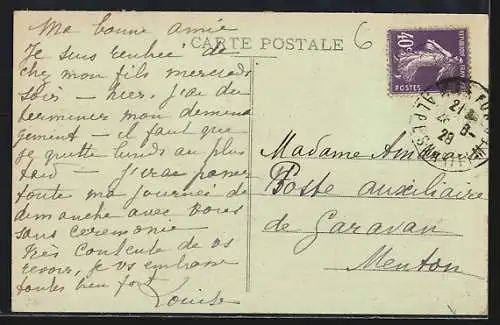 Ma bonne amie
Je suis rentrée de
chez mon fils mercredi
soir – hier, j'ai dû
terminer mon démena
gement – il faut que
je quitte lundi au plus
tard – j'irai passer
toute ma journée de
dimanche avec vous
sans cérémonie
Très contente de vs
revoir, je vs embrasse
toutes bien fort
Louise
CARTE POSTALE
6
40c
POSTES
21
28
ALPES
Madame
Poste auxiliaire
de Garavan
Menton